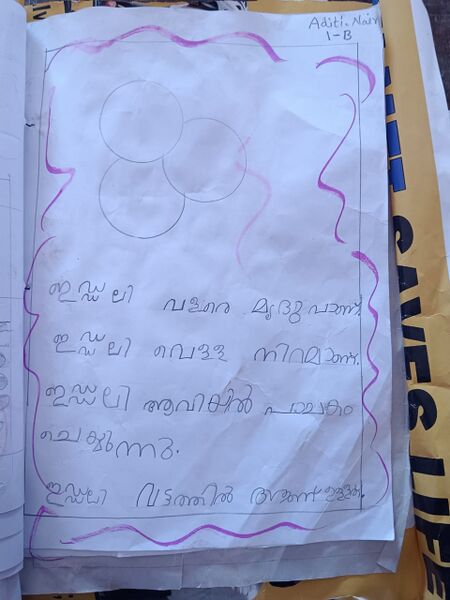 Aditi. Nair
1-B
ഇഡ്ഡലി വളരെ മൃദുവാണ്.
ഇഡ്ഡലി വെള്ള നിറമാണ്.
ഇഡ്ഡലി ആവിയിൽ പാചകം
ചെയ്യുന്നു.
ഇഡ്ഡലി വട്ടത്തിൽ ആണ് ഉള്ളത്.
SAVES LIFE